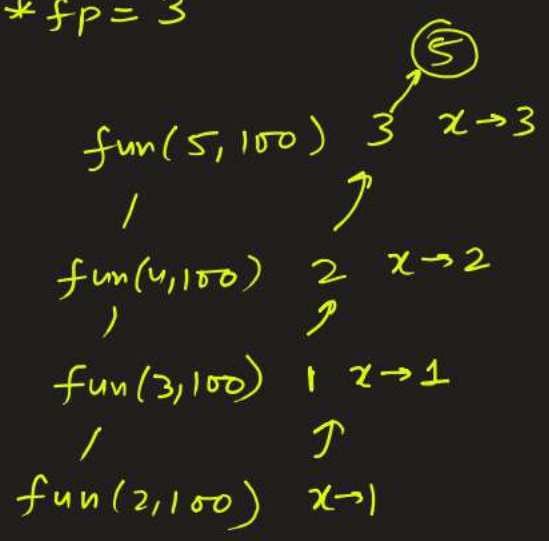 *fp = 3
5
fun(5, 100) 3 x→3
fun(4,100) 2 x→2
fun(3,100) 1 x→1
fun(2,100) x→1